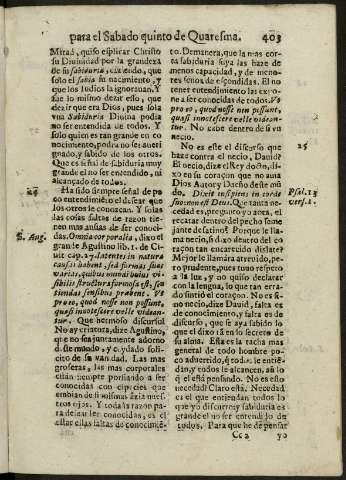 para el Sabado quinto de Quaresma. 403
Mirad, quiso esplicar Christo
su Divinidad por la grandeza
de su sabiduria, diziendo, que
solo el sabia su nacimiento, y
que los Iudios la ignorauan. Y
fue lo mismo dezir esso, que
dezir que era Dios, pues sola
vna Sabiduria Diuina podia
no ser entendida de todos. Y
solo quien es tan grande en co
nocimiento, podra no ser aueri
guado, y sabido de los otros.
Que es señal de sabiduria muy
grande el no ser entendido, ni
alcançado de todos.
24
Ha sido siempre señal de po
co entendimiẽto el desear que
los otros le conozcan. Y solas
las cosas faltas de razon tie-
nen mas ansias de ser conoci-
S. Aug.
das. Omnia corporalia, dixo el
grande Agustino lib. 11. de Ciuit
cap. 27. latentes in natura
causas habent, sed formas suas
varias, quibus mundi huius vi-
sibilis structura formosa est, sen
tiendas sensibus præbent. Vt
pro eo, quod nosse non possunt,
quasi innotescere velle videan-
tur. Que hermoso discurso!
No ay criatura, dize Agustino,
que no sea juntamente adorno
deste mũdo, y cuydado soli-
cito de su vanidad. Las mas
groseras, las mas corporales
estàn siempre porfiando a ser
conocidas con especies que
embian de si mismas azia nues-
tros ojos. Y toda la razon pa-
ra desear ser conocidas, es el
estar ellas faltas de conocimiẽ-
to. Demanera, que la mas cor-
ta sabiduria suya las haze de
menos capacidad, y de meno-
res senos de escondidas. El no
tener entendimiento las expo-
ne a ser conocidas de todos. Vt
pro eo, quod nosse non possunt,
quasi innotescere velle videan-
tur. No cabe dentro de si vn
necio.
25
No es este el discurso que
haze contra el necio, Dauid?
El necio, dize el Rey docto, di-
xo en su coraçon que no auia
Dios Autor y Dueño deste mũ
do. Dixit insipiens in corde
Psal. 13
suo: non est Deus. Que tanta ne-
vers. 1.
cedad es, pregunto yo aora, el
recatar dentro del pecho seme
jante desatino? Porque le lla-
ma necio, si dixo dentro del co
raçon tan escarecido dislate?
Mejor le llamára atreuido, pe-
ro prudente, pues tuuo respeto
a la luz, y no quiso declarar
con la lengua, lo que tan erra-
do sintió el coraçon. No es si-
no necio, dize Dauid, y falta es
de conocimiento, y falta es de
discurso, que le aya sabido lo
que el dixo alsi en lo secreto de
su alma. Esta es la tacha mas
general de todo hombre po-
co aduertido, q̃ todos le entiẽ-
dan, y todos le alcancen, aũ lo
q̃ el està pensando. No es esto
necedad? Claro està. Necedad
es el que entiendan todos lo
que yo discurro; y sabiduria es
grande el no ser entendido de
todos. Para que he de pensar
Cc2 yo